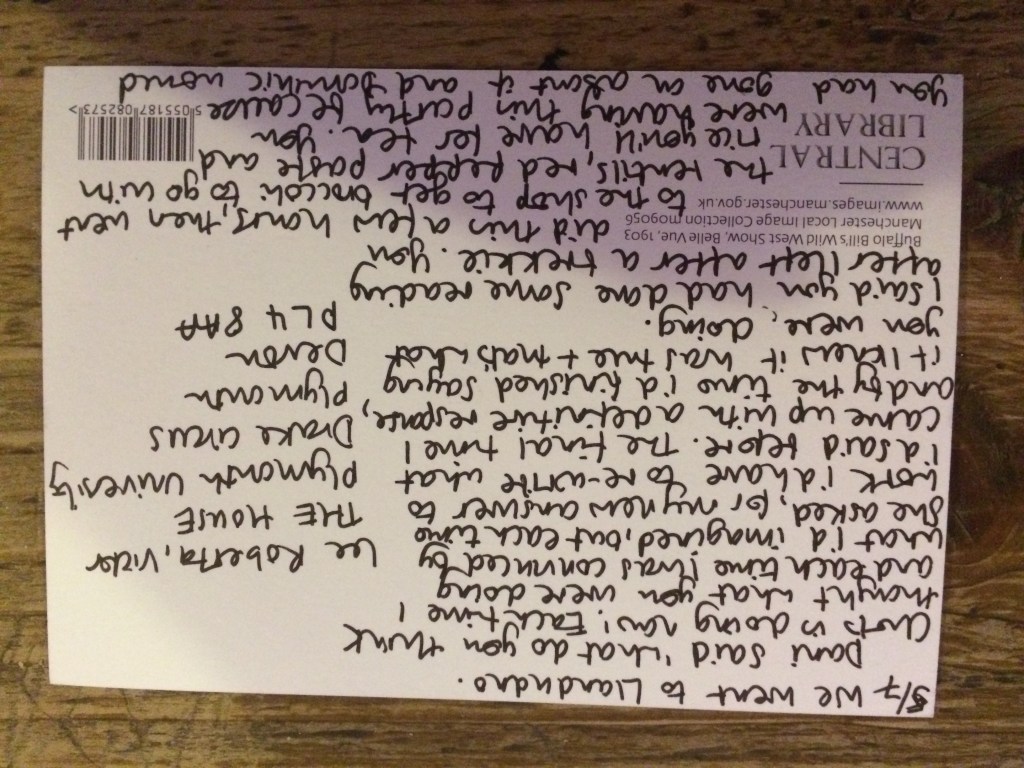 5/7 We went to Llandudno.
Dani said 'what do you think
Chris is doing now'. Each time I
thought what you were doing
and each time I was convinced by
what I'd imagined, but each time
she asked, for my new answer to
work I'd have to re-write what
I'd said before. The final time I
came up with a definitive response,
and by the time I'd finished saying
it I knew it was true + that's what
you were doing.
I said you had done some reading
after I left after a trekkie. You
did this a few hours, then went
to the shop to get broccoli to go with
the lentils, red pepper paste and
rice you'll have for tea. You
were having this partly because
you had gone on about it and Dominic would
Lee Roberta, Victor
THE HOUSE
Plymouth University
Drake Circus
Plymouth
Devon
PL4 8AA
Buffalo Bill's Wild West Show, Belle Vue, 1903
Manchester Local Image Collection m09056
www.images.manchester.gov.uk
CENTRAL
LIBRARY
5 055187 082573 >